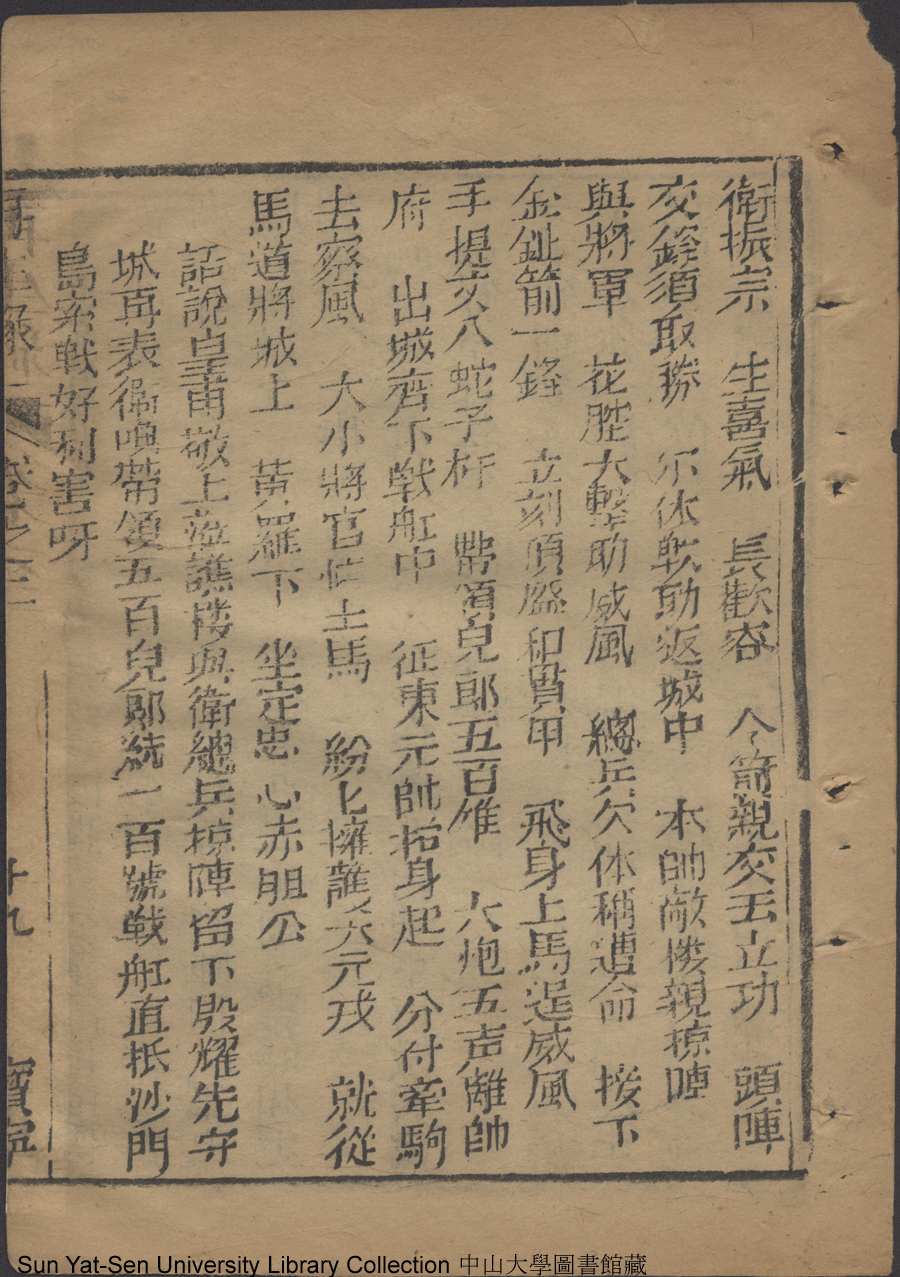 衛振宗　生喜氣　長歡容　令箭親交去立功　頭陣
交鋒須取勝　尔休軟動返城中　本帥敵楼親掠陣
與將軍　花腔大擊助威風　總兵欠体稱遵命　接下
金鈚箭一鋒　立刻頂盔和貫甲　飛身上馬逞威風
手提丈八蛇子杆　帶領兒郎五百雄　大炮五声離帥
府　出城齊下戰舡中　征東元帥抬身起　分付牽駒
去察風　大小將官忙上馬　紛匕擁護大元戎　就從
馬道將城上　黄羅下　坐定忠心赤胆公
話說皇甫敬上譙楼與衛總兵掠陣留下殷耀先守
城再表衛煥帶領五百兒郎統一百號戰舡直抵沙門
島索戰好利害呀
卷之三
十九
寶寧
Sun Yat-Sen University Library Collection 中山大學圖書館藏